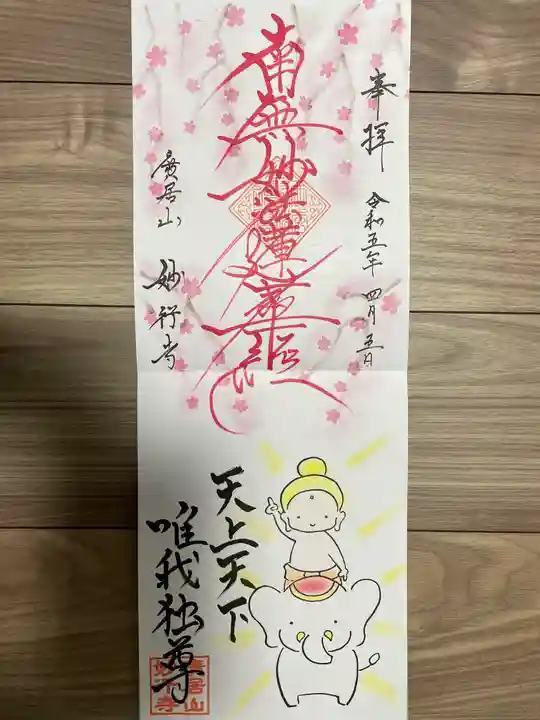 奉拝
令和五年四月五日
南無妙法蓮華経
廣居山
妙行寺
天上天下
唯我独尊
廣居山
妙行寺